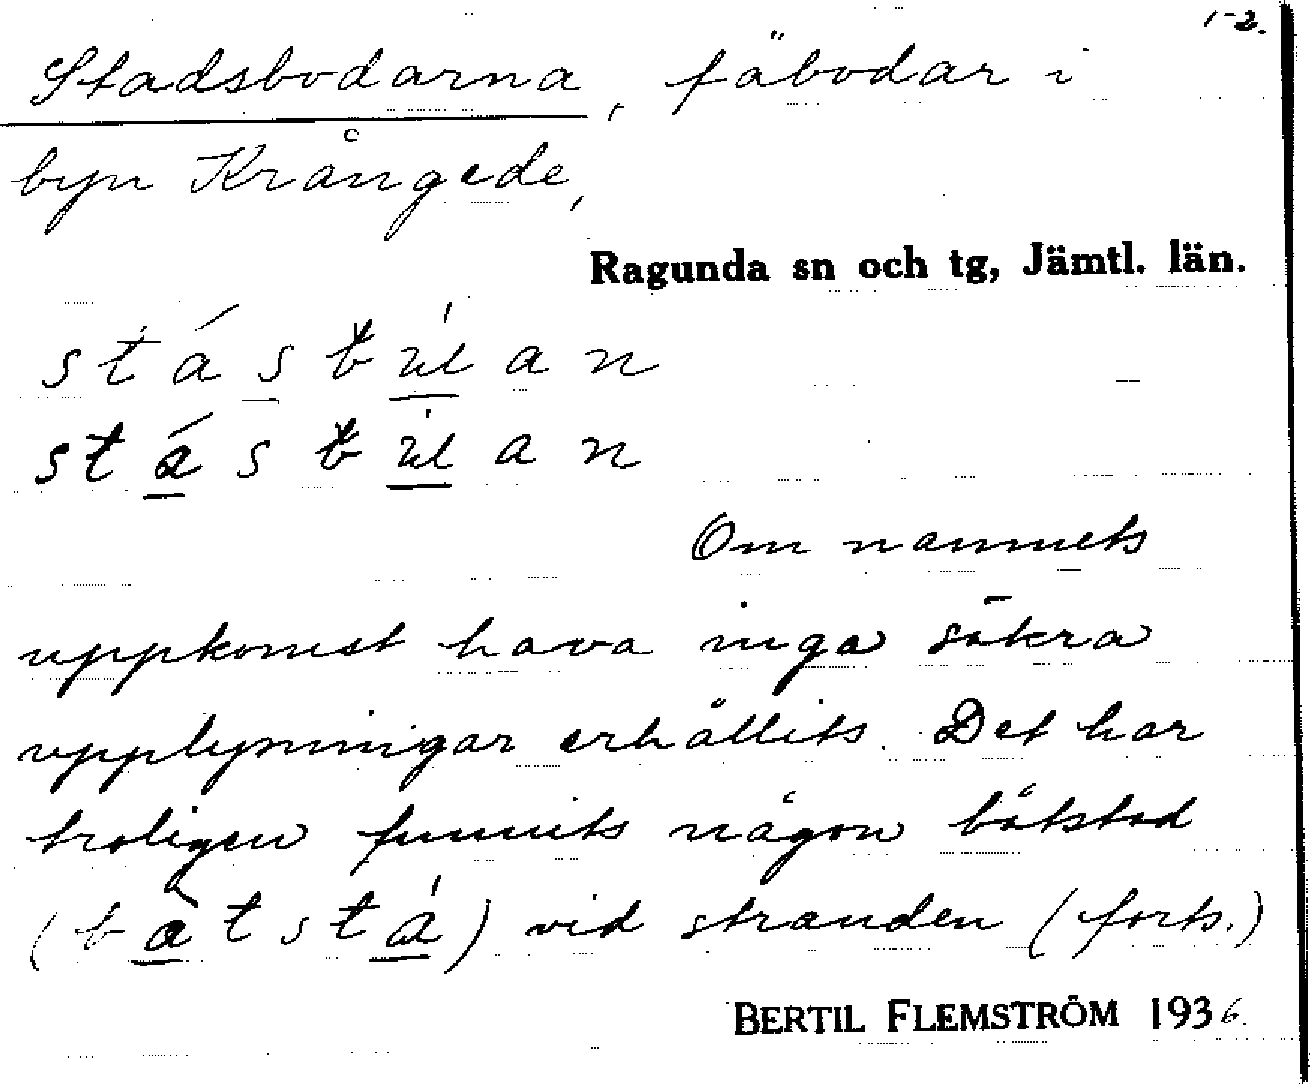 1-2.
Stadsbodarna, fäbodar i
byn Krångede,
Ragunda sn och tg, Jämtl. län.
Om namnets
uppkomst hava inga säkra
upplysningar erhållits. Det har
troligen funnits någon båtstad
vid stranden (forts.)
BERTIL FLEMSTRÖM 1936.